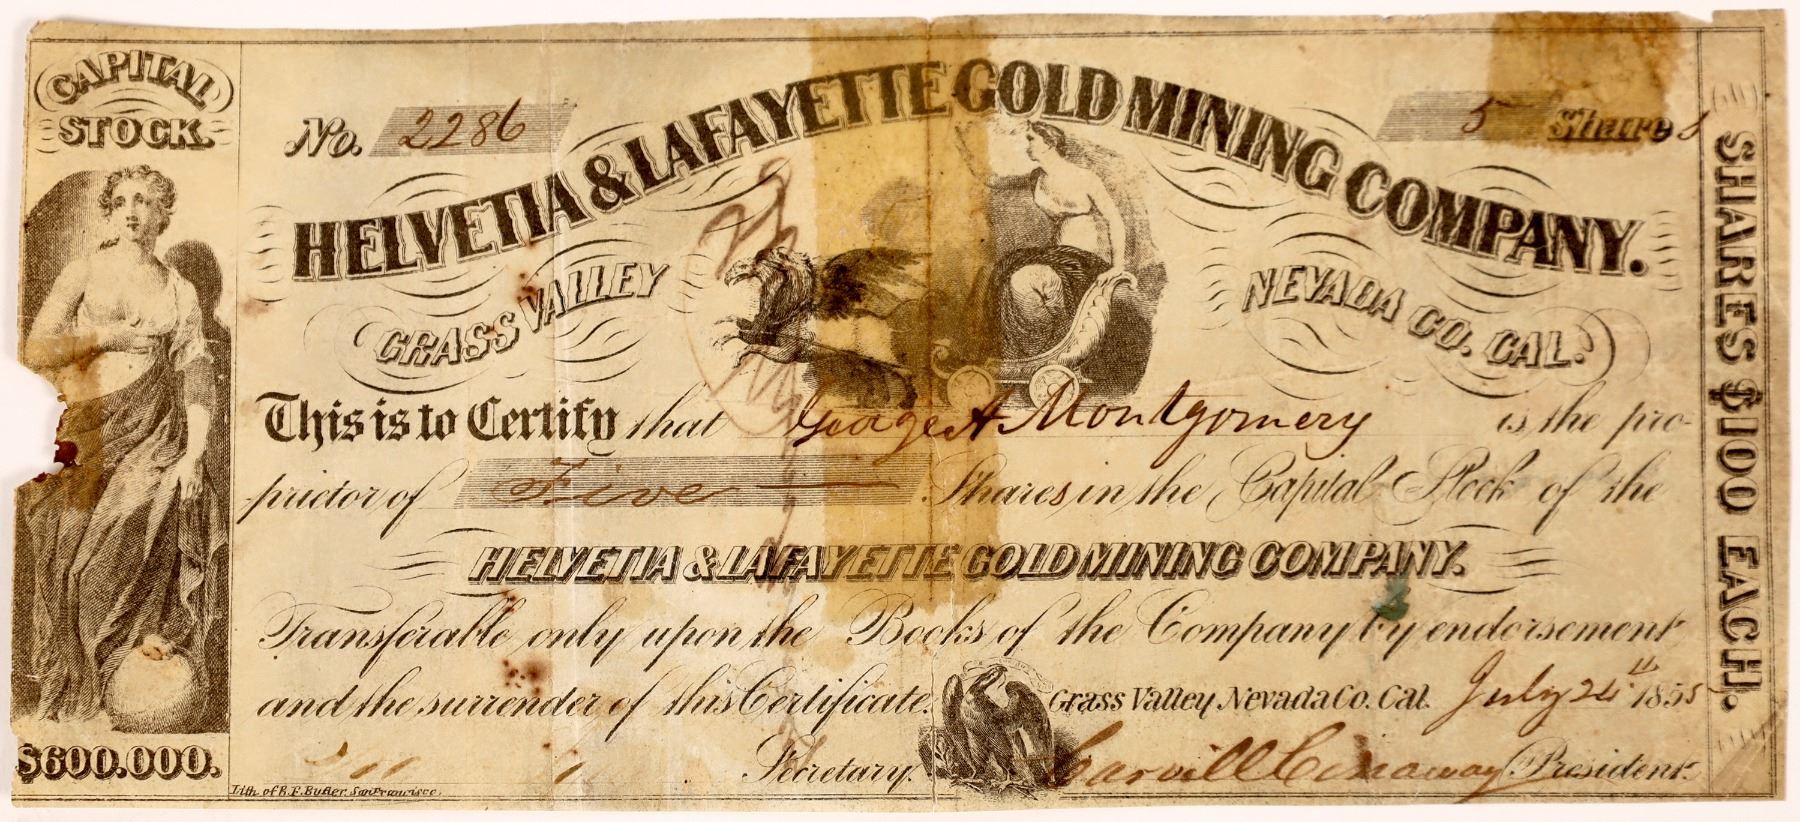 CAPITAL
STOCK.
No. 2286
5 Shares
HELVETIA & LAFAYETTE GOLD MINING COMPANY.
GRASS VALLEY
NEVADA CO. CAL.
This is to Certify that George A Montgomery is the pro-
prietor of Five — Shares in the Capital Stock of the
HELVETIA & LAFAYETTE GOLD MINING COMPANY.
Transferable only upon the Books of the Company by endorsement
and the surrender of this Certificate.
Grass Valley, Nevada Co. Cal. July 24th 1855
Secretary.
President.
$600.000.
Lith. of B.F. Butler, San Francisco.
SHARES $100 EACH.